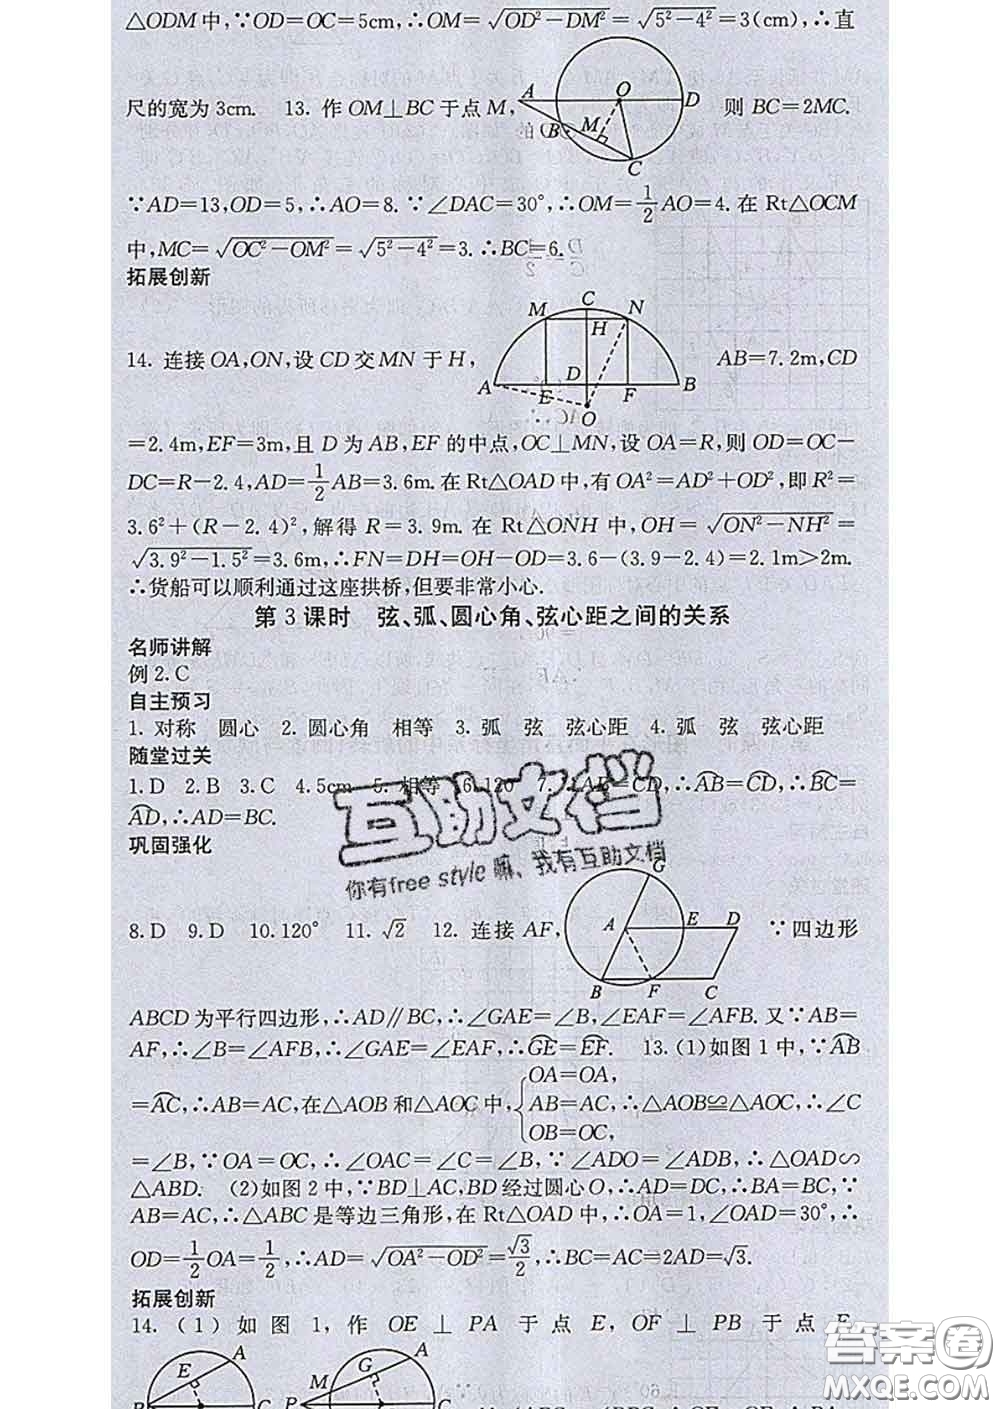 △ODM中,∵OD=OC=5cm,∴OM=√(OD²-DM²)=√(5²-4²)=3(cm),∴直
尺的宽为3cm. 13. 作OM⊥BC于点M, 则BC=2MC.
A O D B M C
∵AD=13,OD=5,∴AO=8.∵∠DAC=30°,∴OM=1/2AO=4.在Rt△OCM
中,MC=√(OC²-OM²)=√(5²-4²)=3.∴BC=6.
拓展创新
M C N H A E D F B O
14. 连接OA,ON,设CD交MN于H, AB=7.2m,CD
=2.4m,EF=3m,且D为AB,EF的中点,OC⊥MN,设OA=R,则OD=OC-
DC=R-2.4,AD=1/2AB=3.6m.在Rt△OAD中,有OA²=AD²+OD²,即R²=
3.6²+(R-2.4)²,解得R=3.9m.在Rt△ONH中,OH=√(ON²-NH²)=
√(3.9²-1.5²)=3.6m,∴FN=DH=OH-OD=3.6-(3.9-2.4)=2.1m>2m.
∴货船可以顺利通过这座拱桥,但要非常小心.
第3课时 弦、弧、圆心角、弦心距之间的关系
名师讲解
例2.C
自主预习
1. 对称 圆心 2. 圆心角 相等 3. 弧 弦 弦心距 4. 弧 弦 弦心距
随堂过关
1.D 2.B 3.C 4.5cm 5. 相等 6.120 7.∵AB=CD,∴⌒AB=⌒CD,∴⌒BC=
⌒AD,∴AD=BC.
巩固强化
互助文档
你有free style嘛、我有互助文档
G A E D B F C
8.D 9.D 10.120° 11.√2 12. 连接AF, ∵四边形
ABCD为平行四边形,∴AD∥BC,∴∠GAE=∠B,∠EAF=∠AFB.又∵AB=
AF,∴∠B=∠AFB,∴∠GAE=∠EAF,∴⌒GE=⌒EF. 13.(1)如图1中,∵⌒AB
=⌒AC,∴AB=AC,在△AOB和△AOC中,{OA=OA, AB=AC, OB=OC, ∴△AOB≌△AOC,∴∠C
=∠B,∵OA=OC,∴∠OAC=∠C=∠B,∵∠ADO=∠ADB,∴△OAD∽
△ABD. (2)如图2中,∵BD⊥AC,BD经过圆心O,∴AD=DC,∴BA=BC,∵
AB=AC,∴△ABC是等边三角形,在Rt△OAD中,∴OA=1,∠OAD=30°,∴
OD=1/2OA=1/2,∴AD=√(OA²-OD²)=√3/2,∴BC=AC=2AD=√3.
拓展创新
14.(1)如图1,作OE⊥PA于点E,OF⊥PB于点F
E A G A M P C
答案圈
MXQE.COM